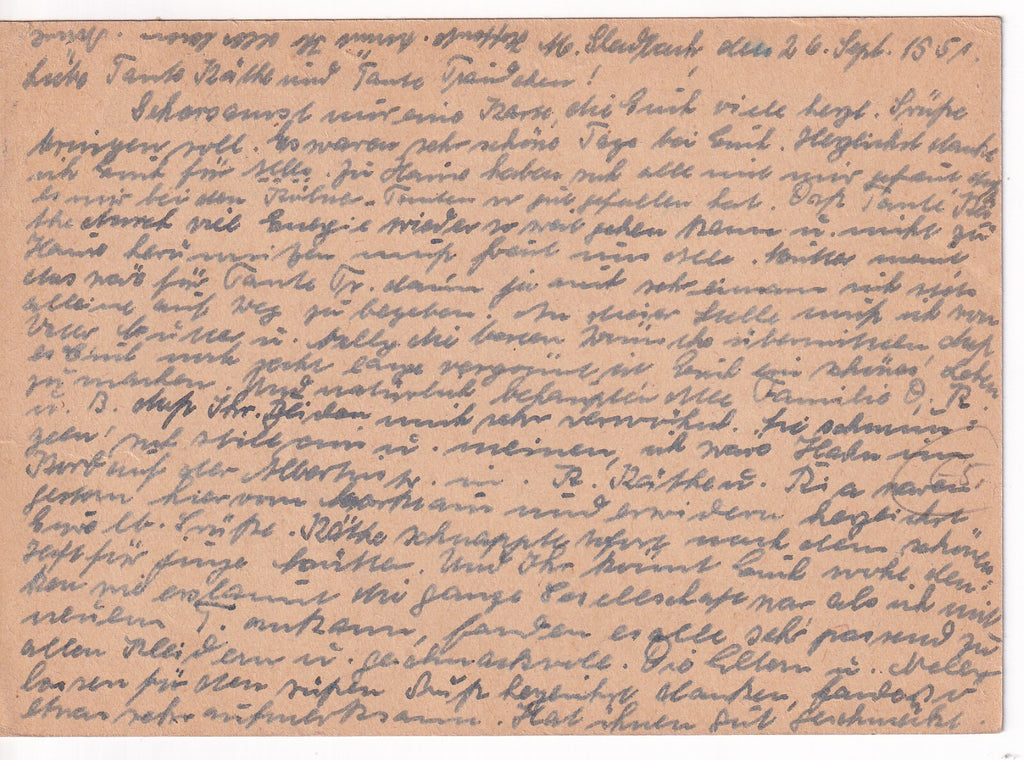 M. Gladbach, den 26. Sept. 1951.
Liebe Tante Käthe und Tante Traudchen!
nur eine Karte, die Euch viele herzl. Grüße
bringen soll. Es waren sehr schöne Tage bei Euch. Herzlichst danke
ich Euch für Alles. Zu Hause haben sich alle mit mir gefreut, daß
es mir bei den Tanten so gut gefallen hat. Daß Tante Kä
the durch viel Energie wieder so weit gehen kann u. nicht zu
Hause herumsitzen muß freut uns alle. Mutter meint,
das wäre für Tante Tr. dann ja auch sehr einsam sich stets
alleine auf Weg zu begeben. An dieser Stelle muß ich von
Vater Mutter u. Nelly die besten Wünsche übermitteln, daß
es Euch noch recht lange vergönnt ist Euch ein schönes Leben
zu machen. Und natürlich behaupten alle Familie O, R.
u. B. daß Ihr mich sehr verwöhnt. Sie
und meinen, ich wäre Hahn im
Korb auf der K. Käthe u. Ria waren
gestern hier vom und erwidern herzlichst
Eure lb. Grüße. Käthe schnappte sofort nach dem schönen
Heft für junge Mütter. Und Ihr könnt Euch wohl den-
ken wie erstaunt die ganze Gesellschaft war als ich mit
neuem T. ankam, fanden es alle sehr passend zu
allen Kleidern u. geschmackvoll. Die Eltern u. Nelly
lassen für den süßen Gruß herzlichst danken,
etwas sehr aufmerksam. Hat ihnen gut geschmeckt.